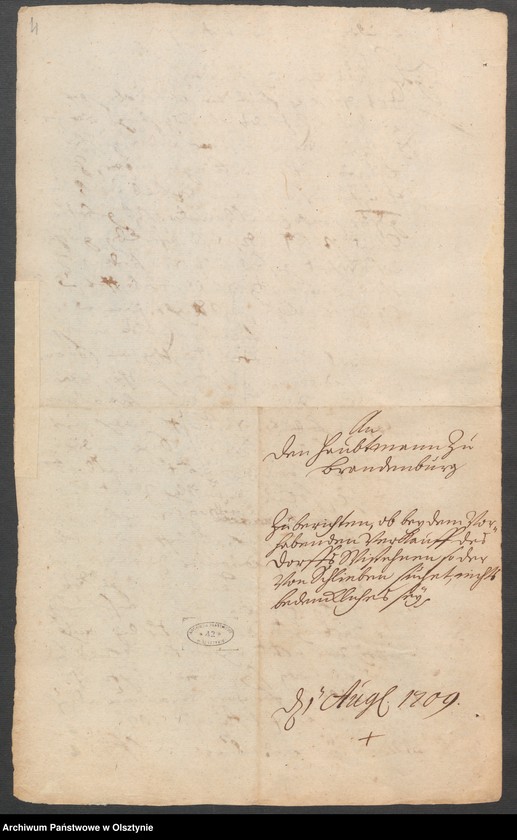 4
An
den Haubtmann Zu
Brandenburg
Zu berichten, ob bey dem Vor-
habenden Verkauff des
Dorffs der
Von Schlieben nichts
bedenckliches sey
1 Aug. 1709.
+
42
Archiwum Państwowe w Olsztynie